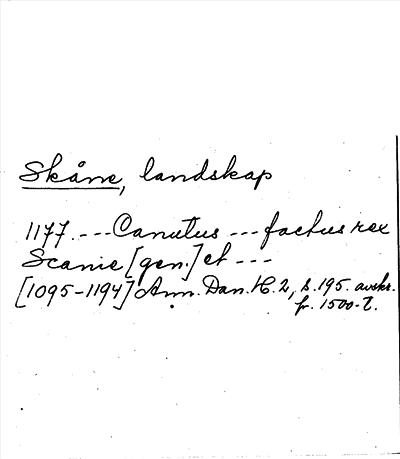 Skåne, landskap
1177. --- Canutus --- factus rex
Scanie [gen.] et ---
[1095-1194] Ann. Dan. H. 2, s. 195. avskr.
fr. 1500-t.